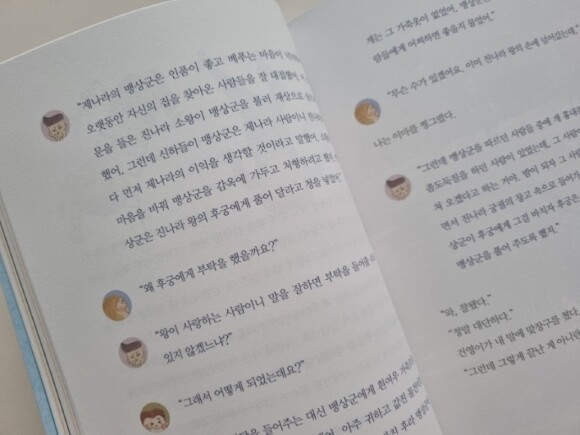 "제나라의 맹상군은 인품이 좋고 베푸는 마음이
오랫동안 자신의 집을 찾아온 사람들을 잘 대접했어.
문을 들은 진나라 소왕이 맹상군을 불러 재상으로
했어. 그런데 신하들이 맹상군은 제나라 사람이니
다 먼저 제나라의 이익을 생각할 것이라고 말했어.
마음을 바꿔 맹상군을 감옥에 가두고 처형하려고 했
상군은 진나라 왕의 후궁에게 풀어 달라고 청을 넣었
"왜 후궁에게 부탁을 했을까요?"
"왕이 사랑하는 사람이니 말을 잘하면 부탁을 들어줄
있지 않겠느냐?"
"그래서 어떻게 되었는데요?"
들어주는 대신 맹상군에게 흰여우
아주 귀하고 값진
게는 그 가죽옷이 없었어.
람들에게 어찌하면 좋을지 물었어."
"무슨 수가 있겠어요. 이미 진나라 왕의 손에 넘어갔는데."
나는 이마를 찡그렸다.
"그런데 맹상군을 따르던 사람들 중에 개 흉내
좀도둑질을 하던 사람이 있었는데, 그 사람
쳐 오겠다고 하는 거야. 밤이 되자 그 사람
면서 진나라 궁궐의 창고 속으로 들어가
상군이 후궁에게 그걸 바치자 후궁은
맹상군을 풀어 주도록 했지."
"와, 잘됐다."
"정말 대단하다."
건영이가 내 말에 맞장구를 쳤다.
"그런데 그렇게 끝난 게 아니란